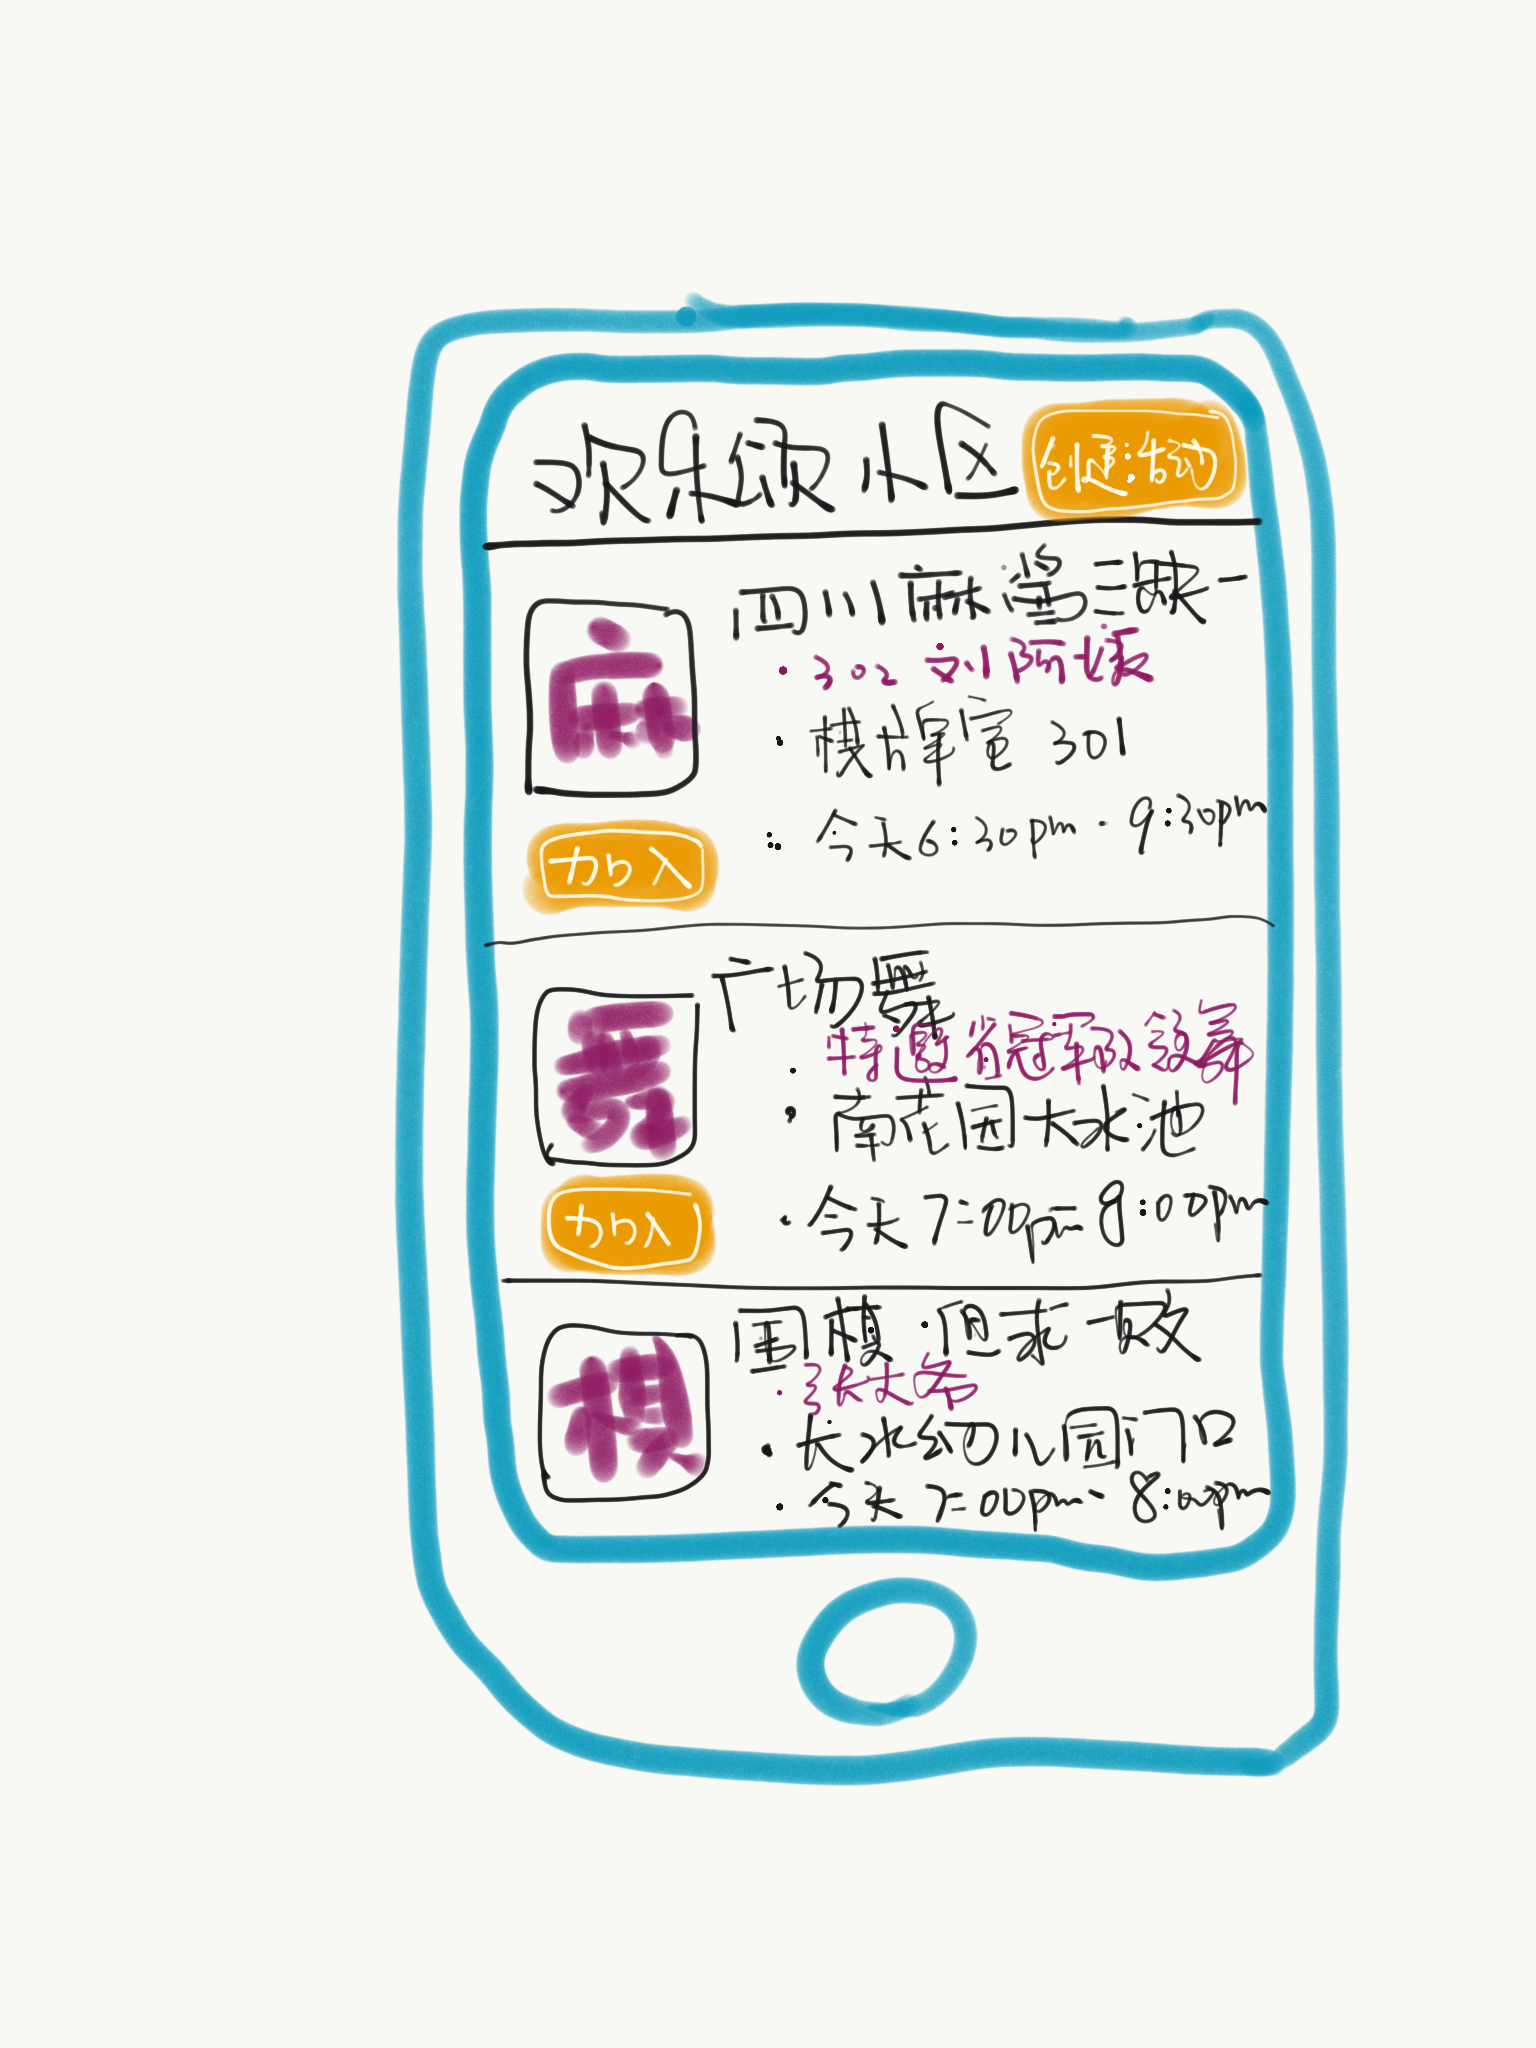 欢乐颂小区 创建活动
麻
四川麻酱三缺一
302 刘阿姨
棋牌室 301
今天6:30pm - 9:30pm
加入
舞
广场舞
特邀省冠军队领舞
南花园大水池
今天7:00pm 9:00pm
加入
棋
围棋 但求一败
张大爷
长水幼儿园门口
今天 7:00pm - 8:00pm